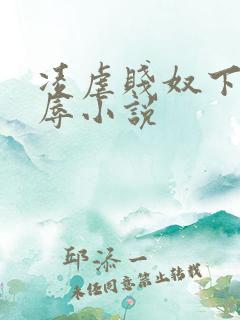 凌虐贱奴下
辱小说
邱添一
未经同意禁止转载